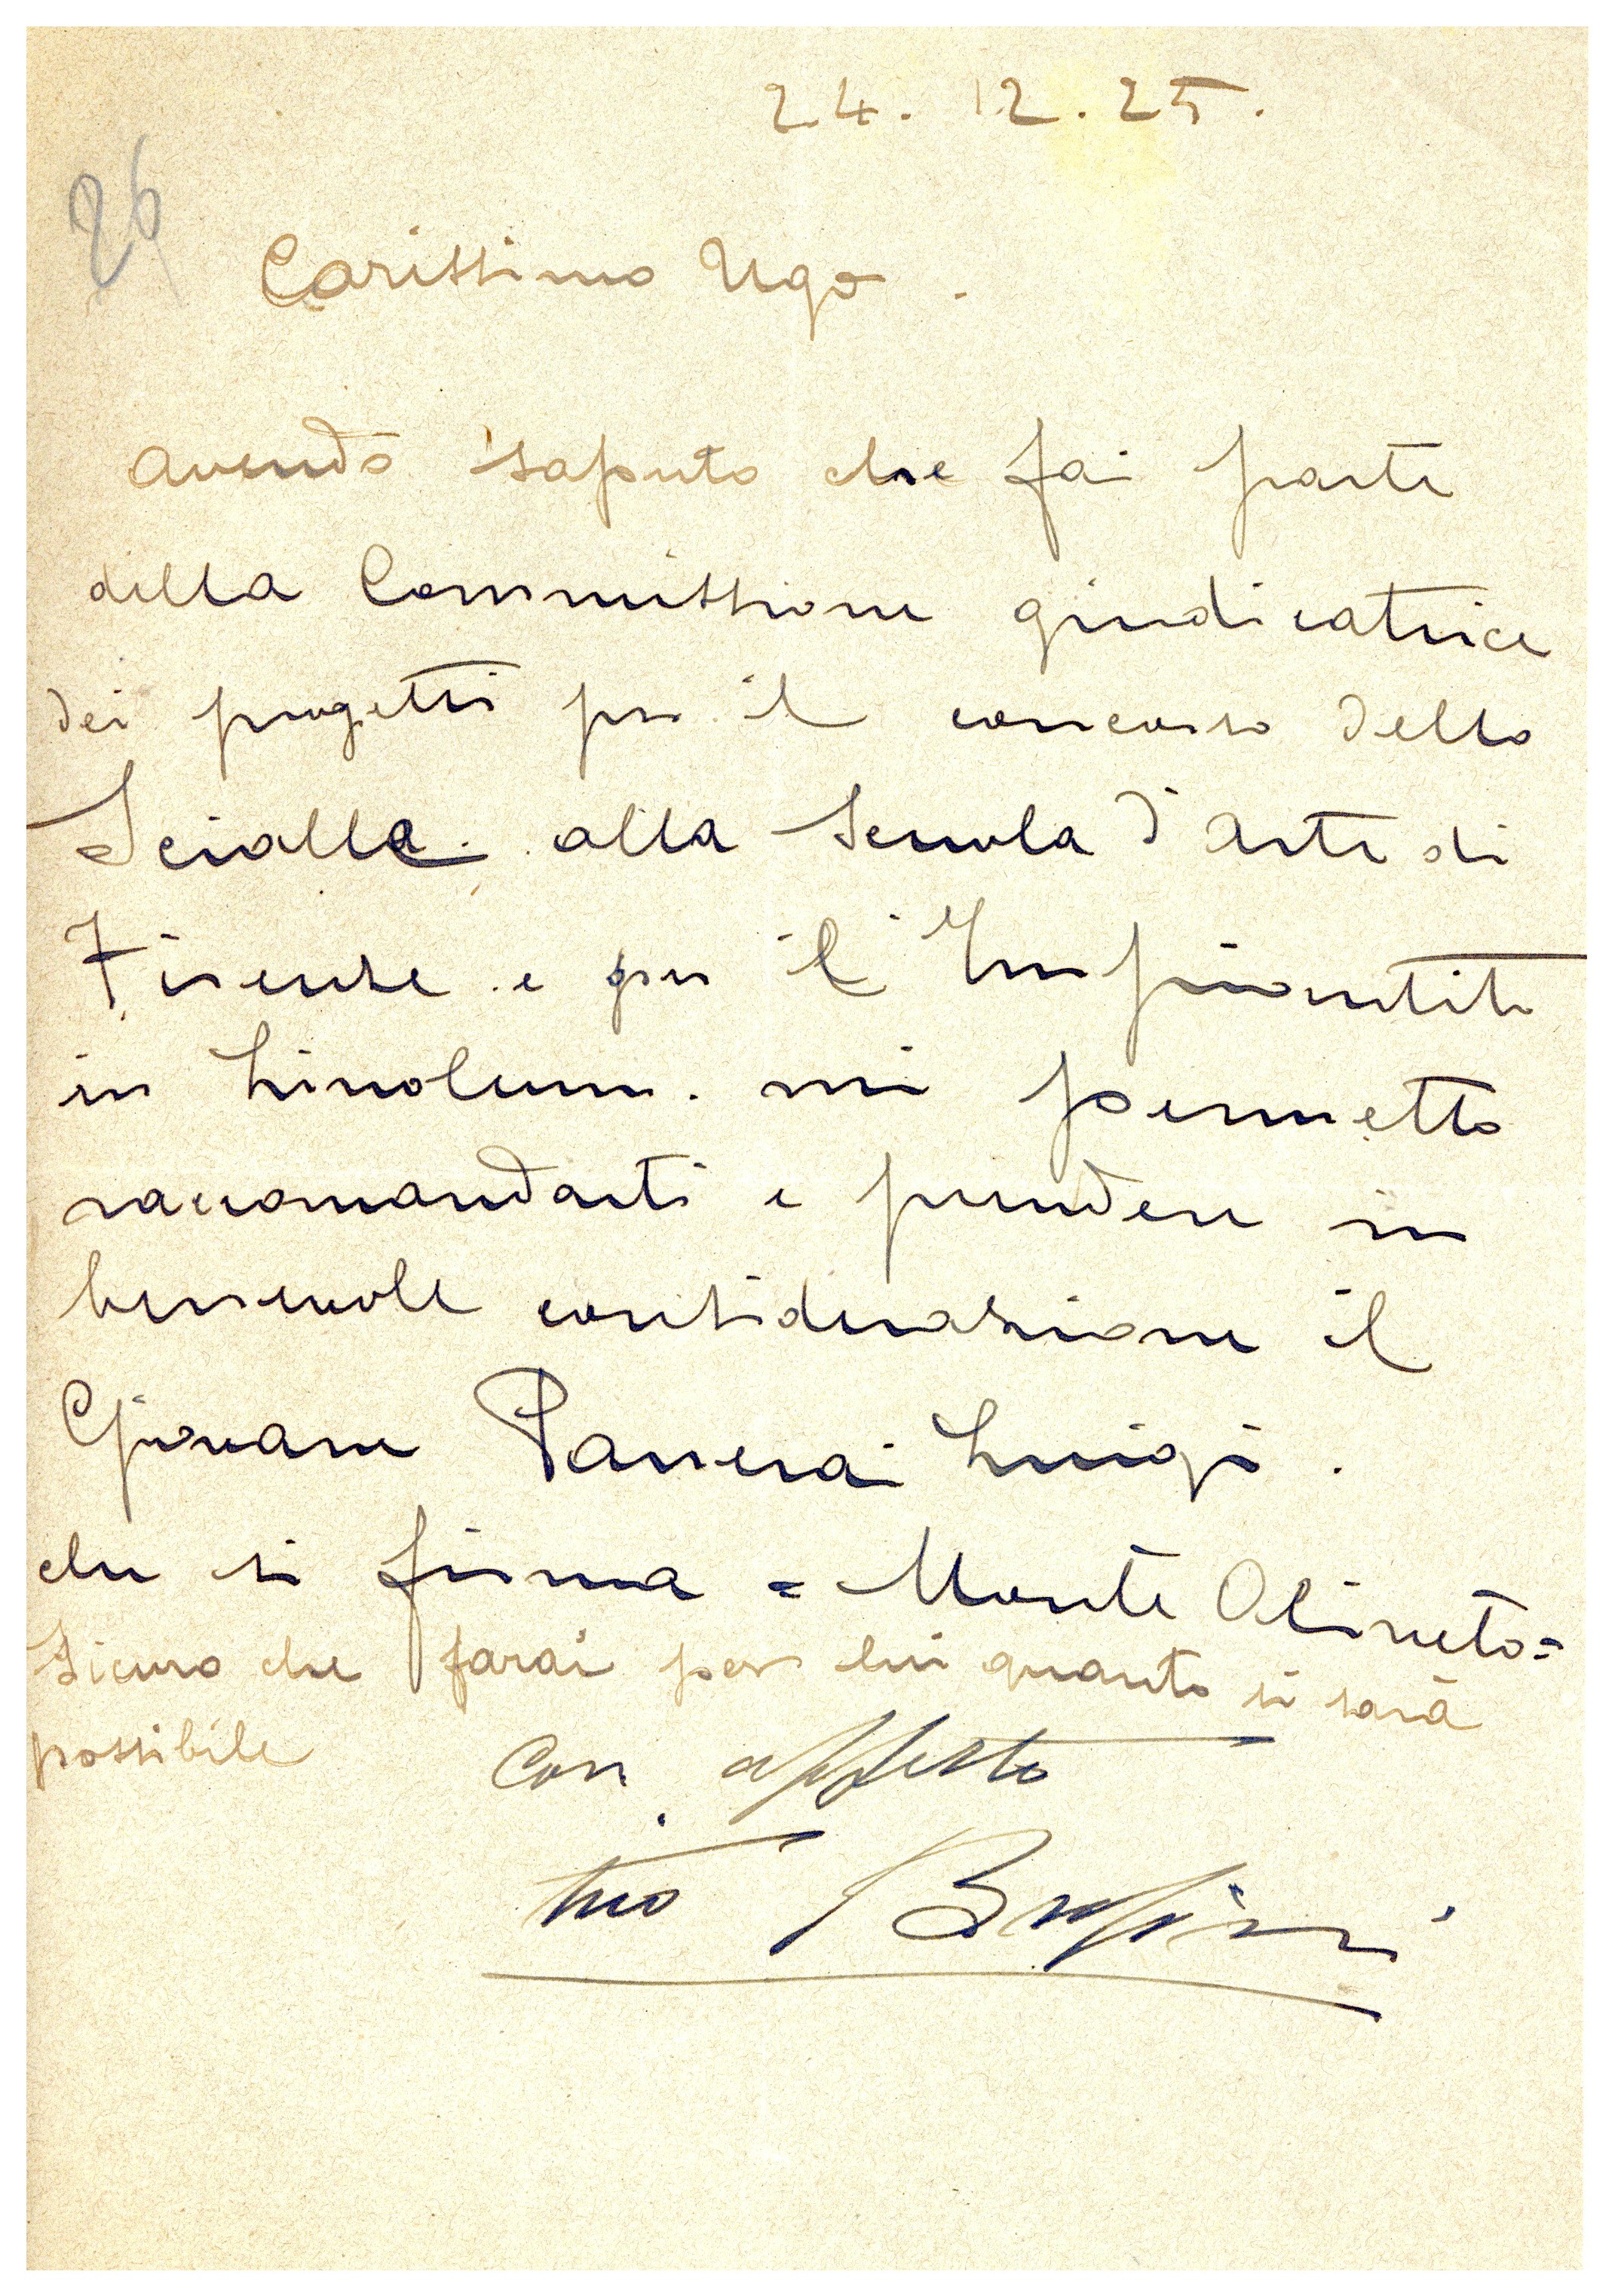 24. 12. 25.
26
Carissimo Ugo.
avendo saputo che fai parte
della Commissione giudicatrice
dei progetti per il concorso dello
Scialle. alla Scuola d'Arte di
Firenze. e per il Impiantito
in Linoleum. mi permetto
raccomandarti e prendere in
benevole considerazione il
Giovane Panerai Luigi.
che si firma = Monte Oliveto =
Sicuro che farai per lui quanto ti sarà
possibile
Con affetto
tuo